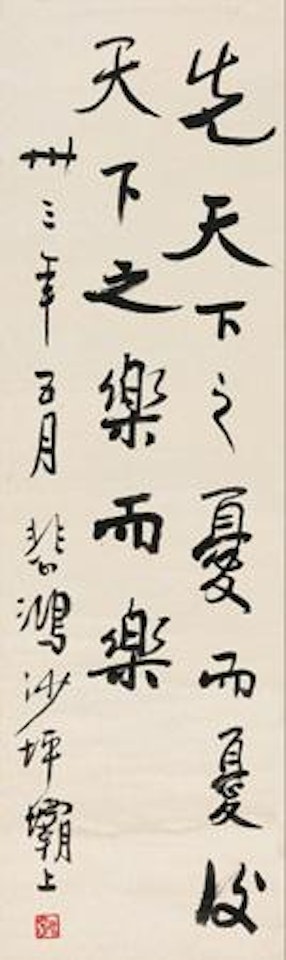 先天下之憂而憂後
天下之樂而樂
卅三年五月悲鴻沙坪壩上